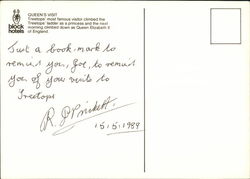 block
hotels
QUEEN'S VISIT
Treetops' most famous visitor climbed the
Treetops' ladder as a princess and the next
morning climbed down as Queen Elizabeth II
of England.
Just a book-mark to
remind you, Joe, to remind
you of your visits to
Treetops
R. J. Prickett.
15/5/1989